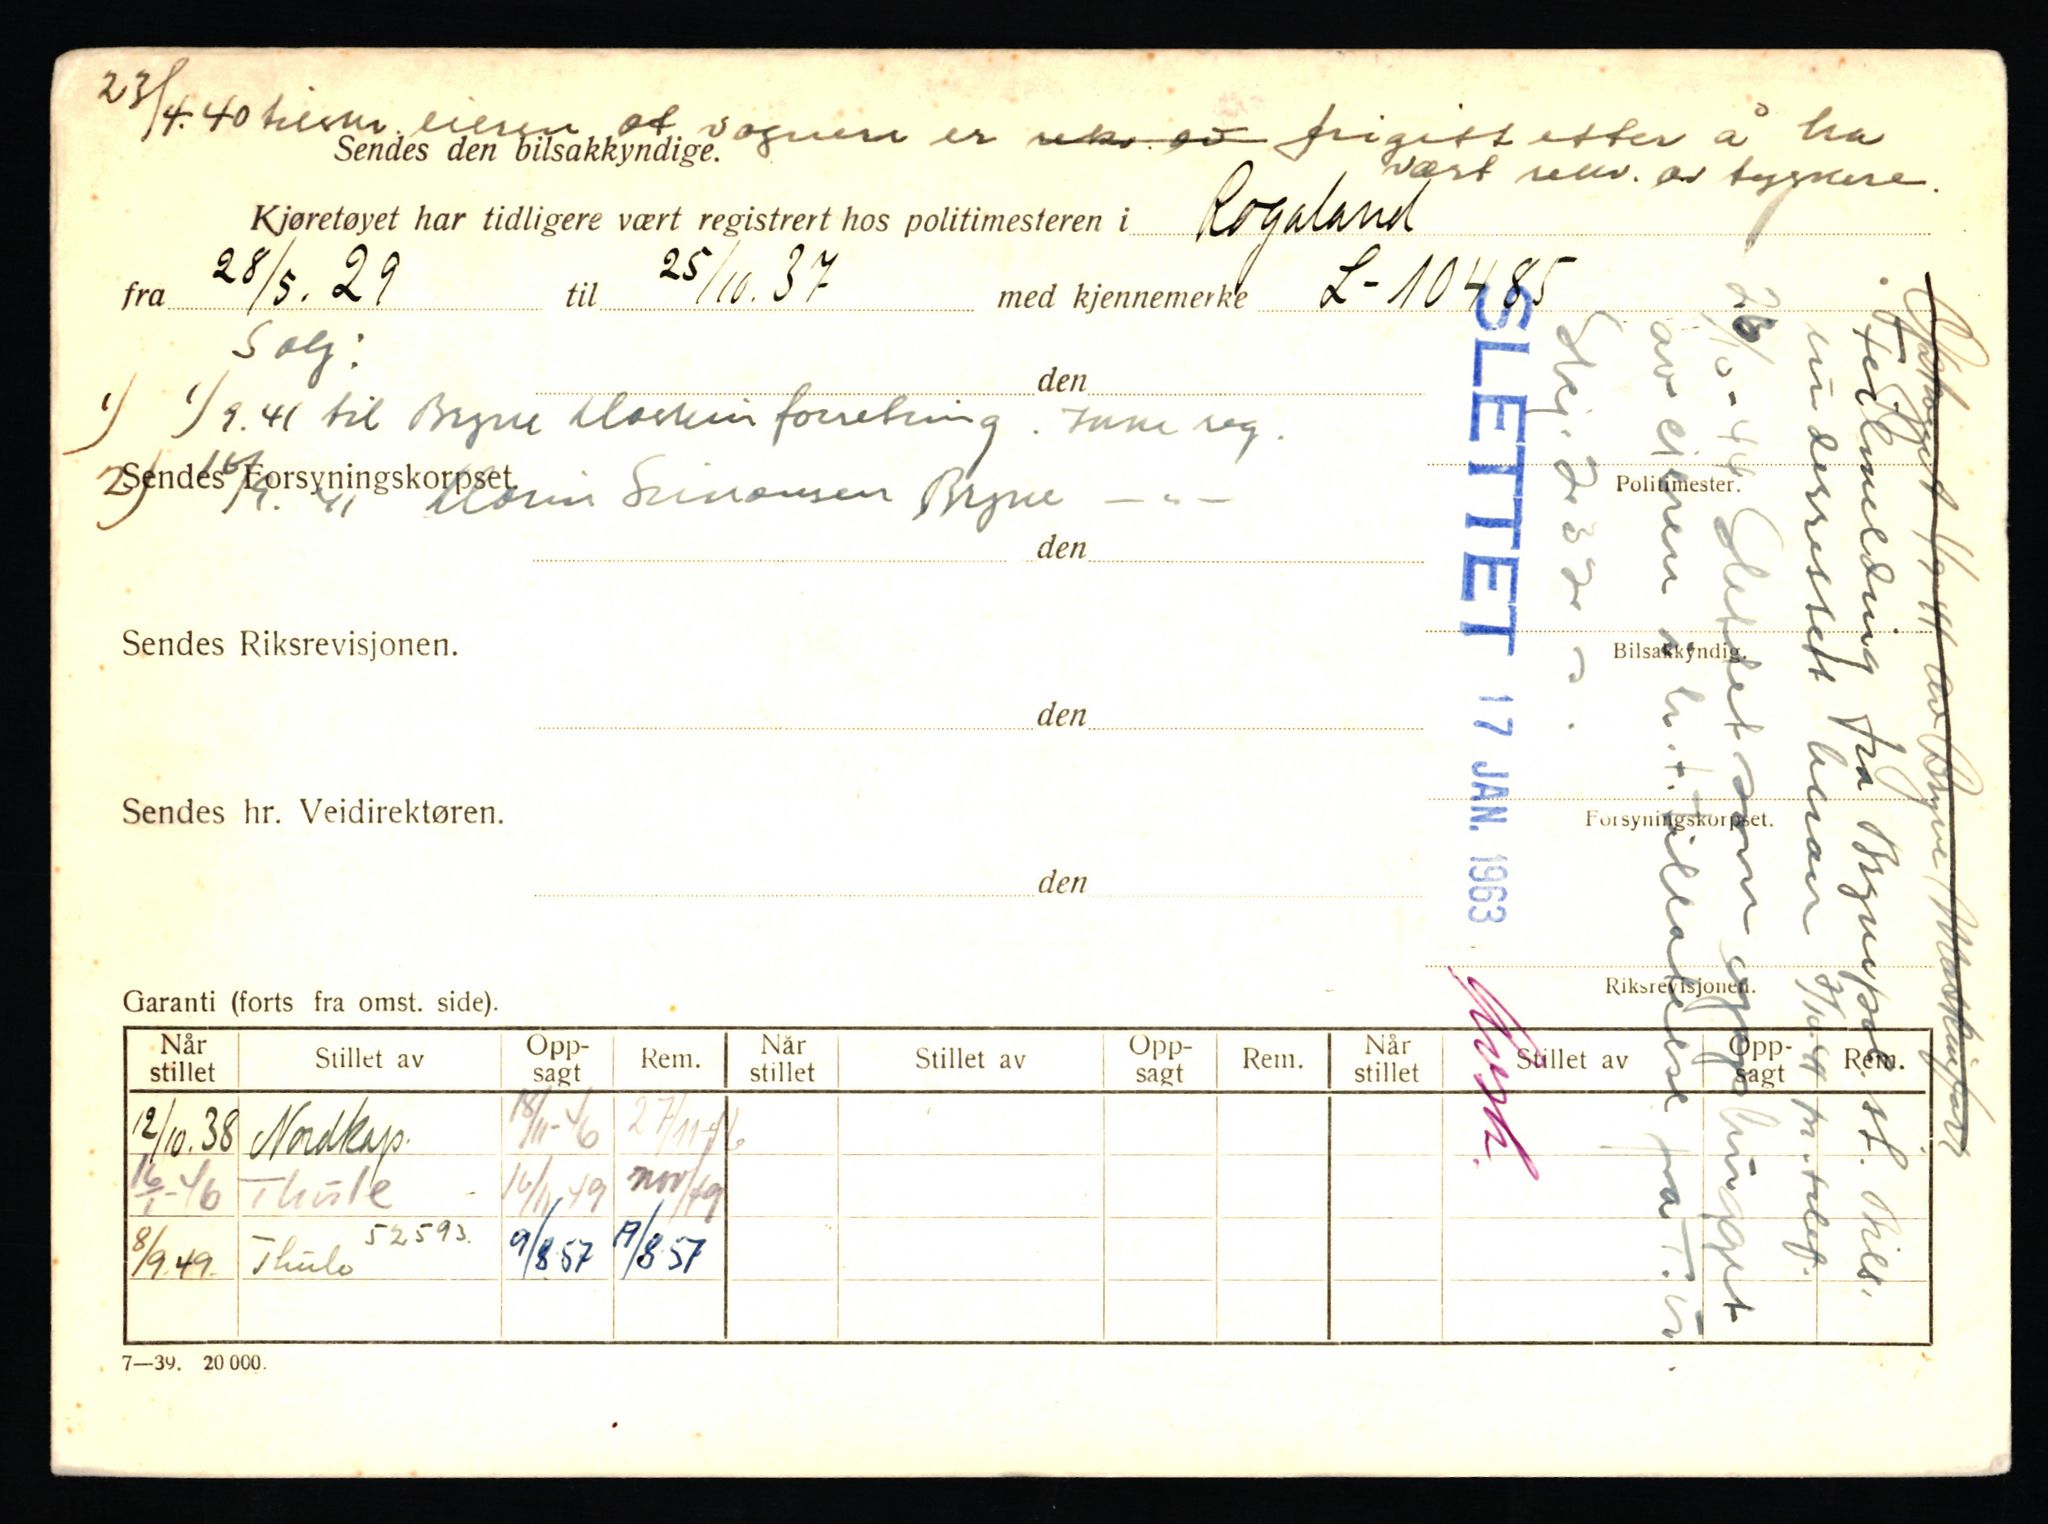 23/4.40 tilskr. eieren at vognen er rekv. av frigitt etter å ha
vært rekv. av tyskere.
Sendes den bilsakkyndige.
Kjøretøyet har tidligere vært registrert hos politimesteren i Rogaland
fra 28/5. 29 til 25/10. 37 med kjennemerke L-10485
Salg:
den
1) 1/9.41 til Bryne Maskinforretning. Ikke reg.
Sendes Forsyningskorpset.
Politimester.
2) /9. 41 Marin Simonsen Bryne — " —
den
Sendes Riksrevisjonen.
Bilsakkyndig.
den
Sendes hr. Veidirektøren.
Forsyningskorpset.
den
Riksrevisjonen.
SLETTET 17 JAN. 1963
av eieren Tilladelse fra
26/10-44 Slettet som opphugget
underrettet heran 3/10.44 pr. telef.
Feilmelding fra Bryne pol.st. Bils.
Opphugget 1/9 44 av Bryne Maskinforr.
Garanti (forts fra omst. side).
Når stillet Stillet av Opp-sagt Rem. Når stillet Stillet av Opp-sagt Rem. Når stillet Stillet av Opp-sagt Rem.
12/10.38 Nordkap. 18/11-46 27/11-46
16/1-46 Thule 16/11.49 nov/49
8/9.49. Thule 52593. 9/8.57 19/8.57
7—39. 20 000.